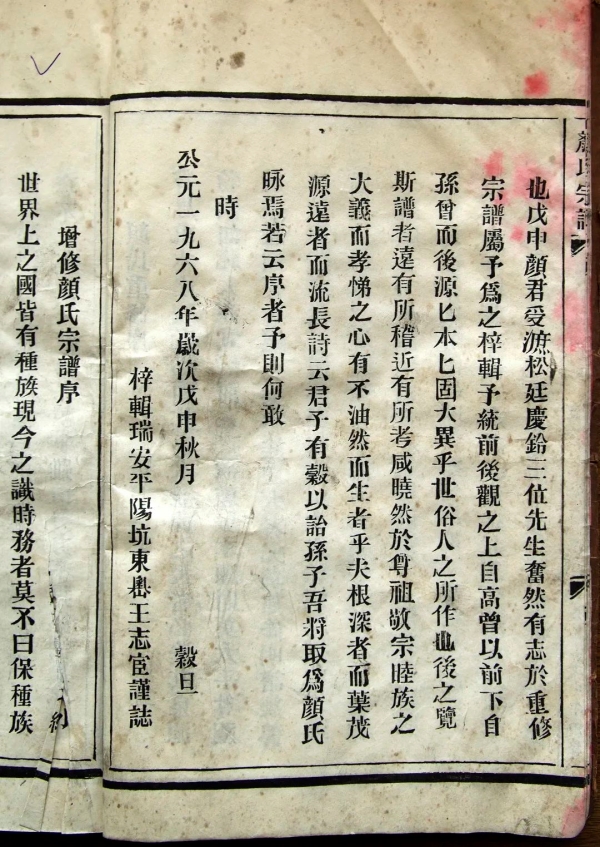 顏氏宗譜
也戊申顏君受滮松廷慶鈴三位先生奮然有志於重修
宗譜屬予爲之梓輯予統前後觀之上自高曾以前下自
孫曾而後源匕本匕固大異乎世俗人之所作也後之覽
斯譜者遠有所稽近有所考咸曉然於尊祖敬宗睦族之
大義而孝悌之心有不油然而生者乎夫根深者而葉茂
源遠者而流長詩云君子有穀以詒孫子吾將取爲顏氏
咏焉若云序者予則何敢
時
公元一九六八年歲次戊申秋月 穀旦
梓輯瑞安平陽坑東嶴王志宦謹誌
增修顏氏宗譜序
世界上之國皆有種族現今之識時務者莫不曰保種族